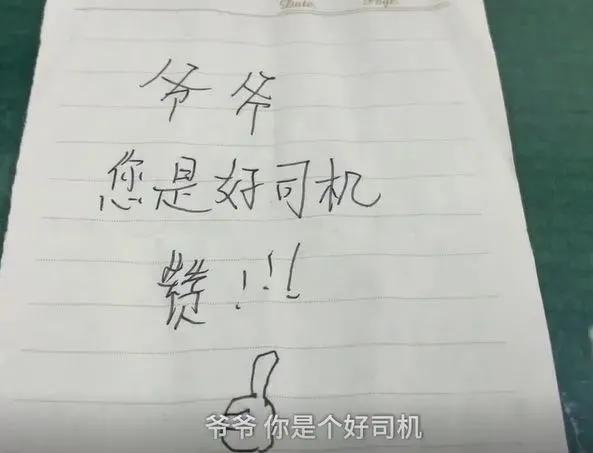 Date Page
爷爷
您是好司机
赞!!!
爷爷 你是个好司机